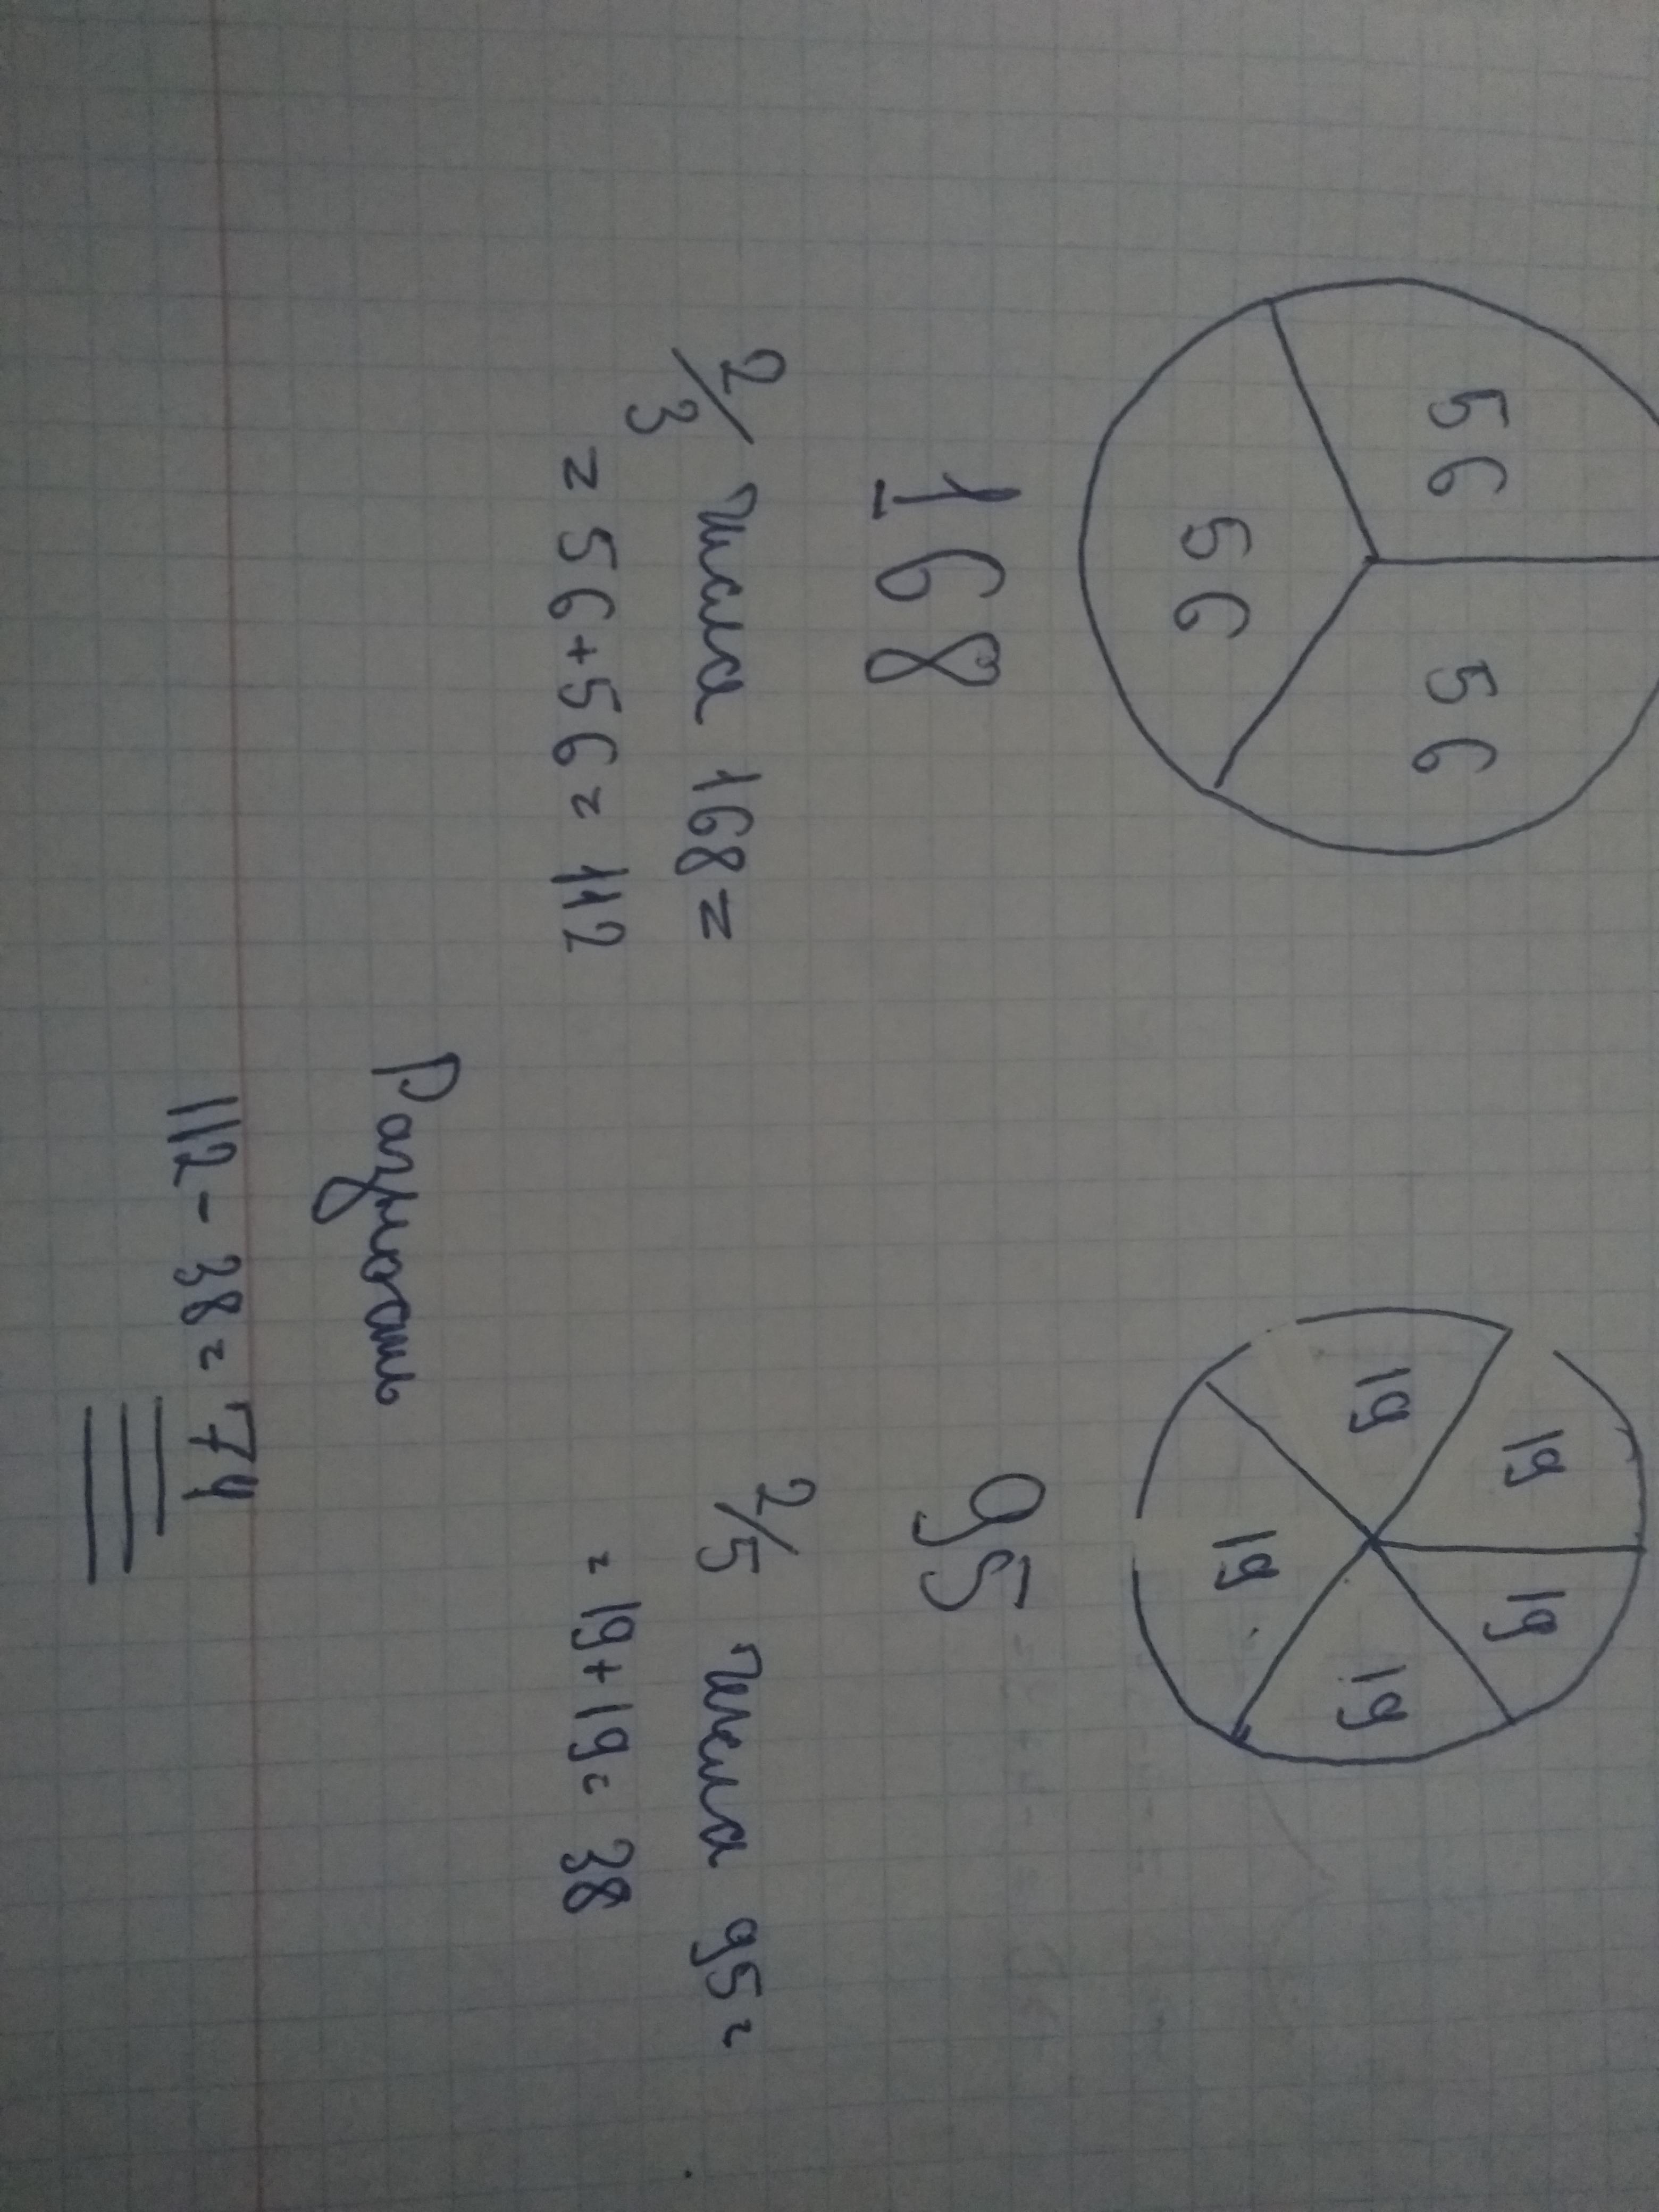 56 56
56
168
2/3 числа 168 =
= 56 + 56 = 112
19 19
19 19
19
95
2/5 числа 95 =
= 19 + 19 = 38
Разность
112 - 38 = 74